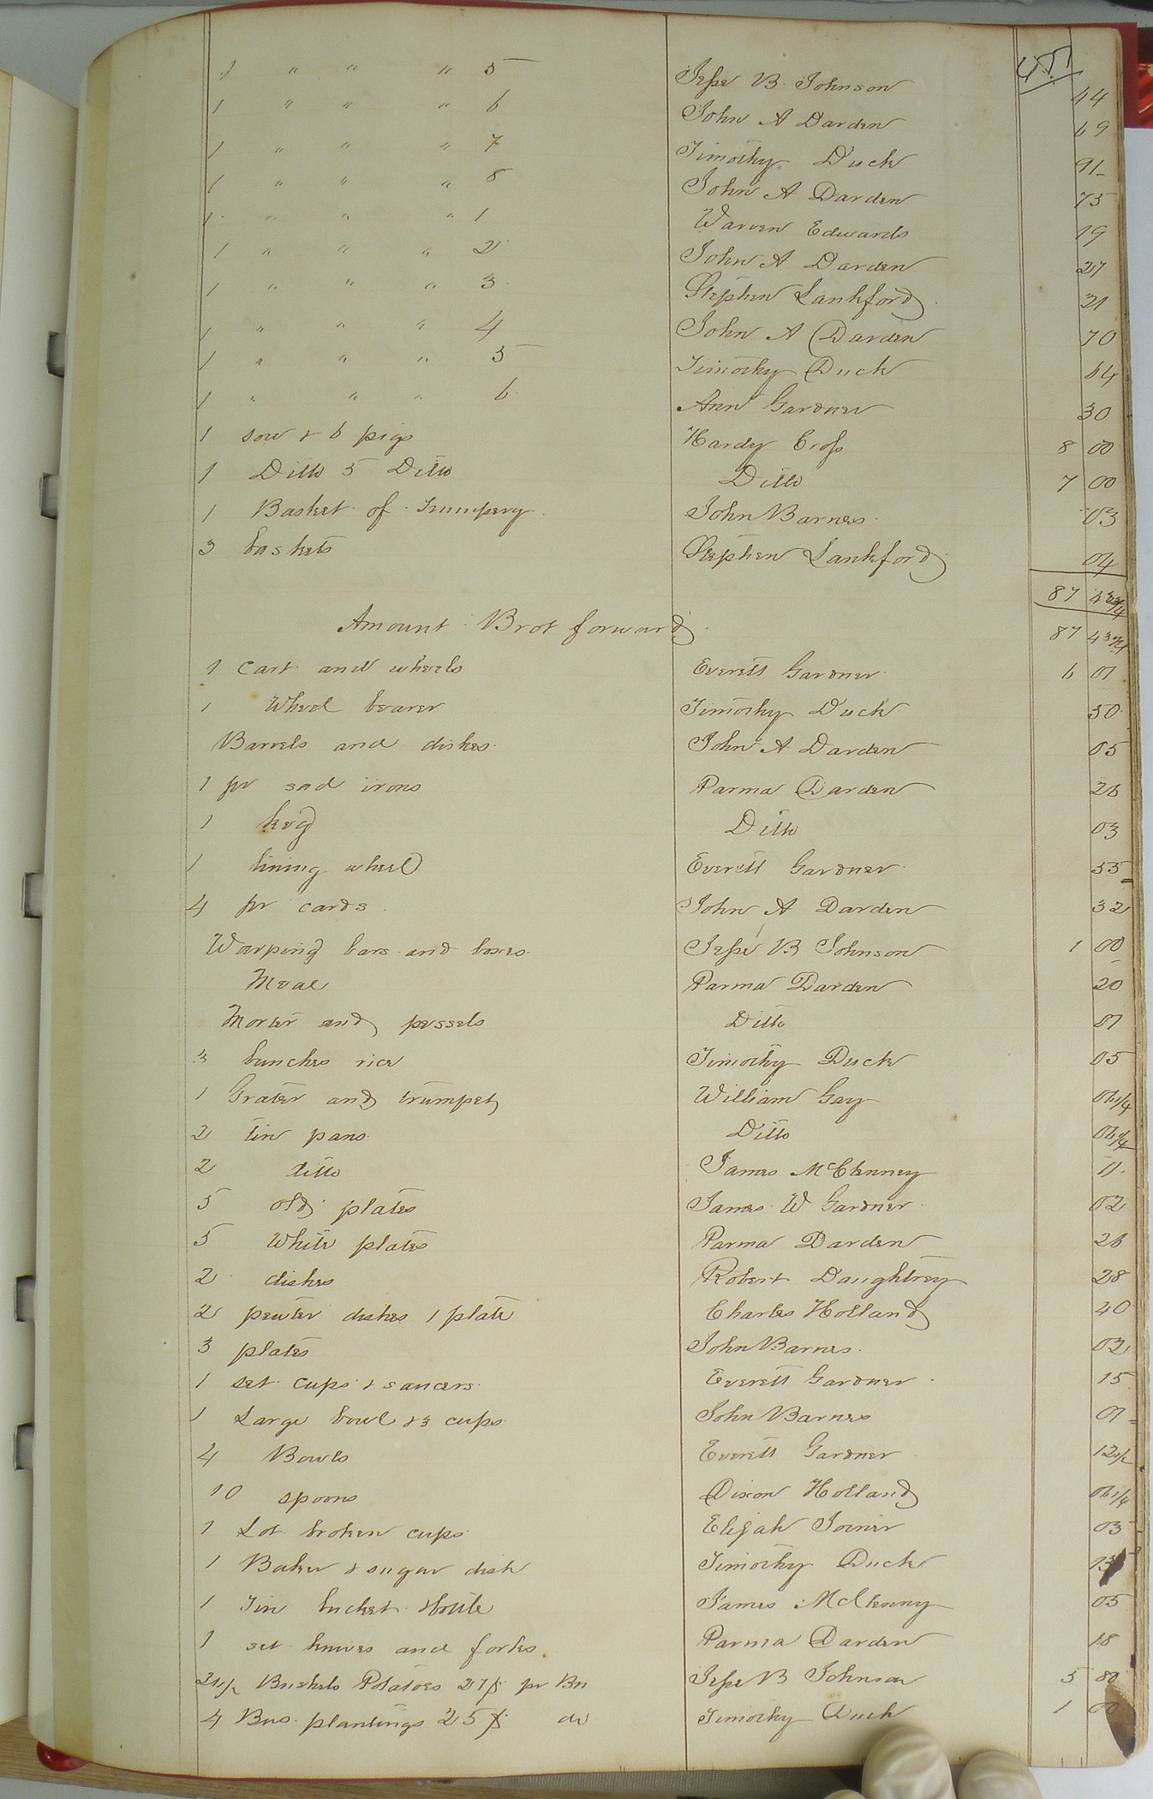 451
1 " " " 5 Jesse B. Johnson 44
1 " " " 6 John A Darden 69
1 " " " 7 Timothy Duck 91
1 " " " 8 John A Darden 75
1 " " " 1 Warren Edwards 19
1 " " " 2 John A Darden 27
1 " " " 3 Stephen Lankford 21
1 " " " 4 John A Darden 70
1 " " " 5 Timothy Duck 64
1 " " " 6 Ann Gardner 30
1 sow & 6 pigs Hardy Cross 8 00
1 Ditto 5 Ditto Ditto 7 00
1 Basket of Trumpery John Barnes 03
3 baskets Stephen Lankford 04
87 43 3/4
Amount Brot forward 87 43 3/4
1 Cart and wheels Everett Gardner 6 01
1 Wheel bearer Timothy Duck 50
Barrels and dishes John A Darden 05
1 pr sad irons Parma Darden 26
1 keg Ditto 03
1 lining wheel Everett Gardner 55
4 pr cards John A Darden 32
Warping bars and boxes Jesse B Johnson 1 00
Meal Parma Darden 20
Morter and pessels Ditto 07
3 bunches rice Timothy Duck 05
1 Grater and trumpet William Gay 06 1/4
2 tin pans Ditto 06 1/4
2 ditto James McClenney 11
5 old plates James W Gardner 02
5 White plates Parma Darden 26
2 dishes Robert Daughtrey 28
2 pewter dishes 1 plate Charles Holland 40
3 plates John Barnes 02
1 set cups & saucers Everett Gardner 15
1 Large bowl & 3 cups John Barnes 07
4 Bowls Everett Gardner 12 1/2
10 spoons Dixon Holland 06 1/4
1 Lot broken cups Elijah Joiner 03
1 Baker & sugar dish Timothy Duck
1 Tin bucket & bottle James McClenny 05
1 set knives and forks Parma Darden 18
21 1/2 Bushels Potatoes 27¢ pr Bu Jesse B Johnson 5 80
4 Bus. plantings 25¢ do Timothy Duck 1 00